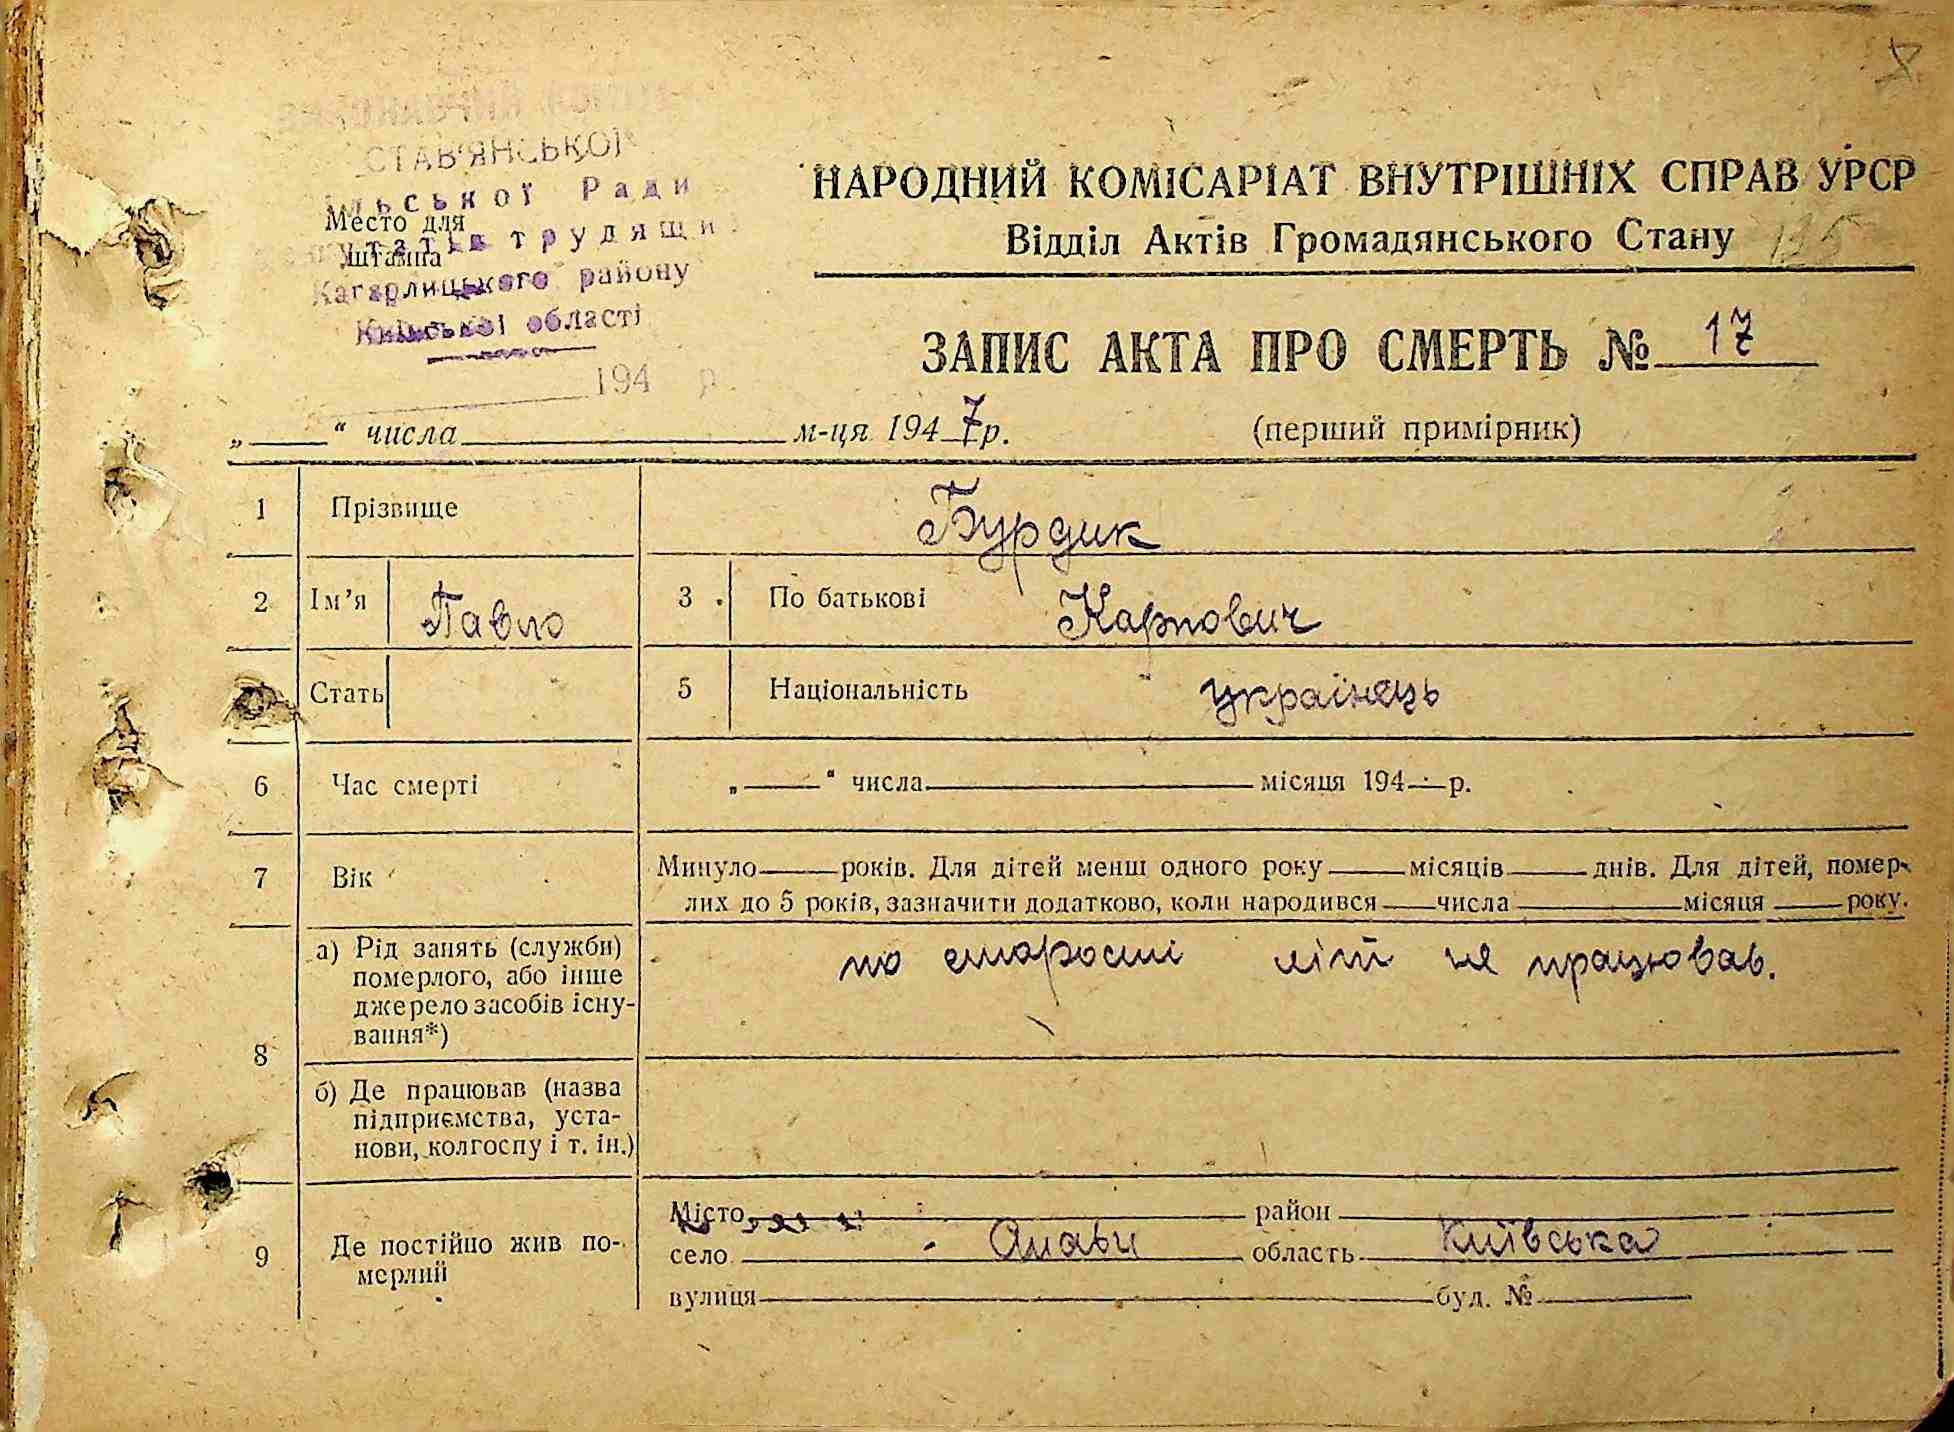 СТАВ'ЯНСЬКОЇ
ільської Ради
Место для
штампа
трудящи
Кагарлицького району
Київської області
194 р.
НАРОДНИЙ КОМІСАРІАТ ВНУТРІШНІХ СПРАВ УРСР
Відділ Актів Громадянського Стану 135
ЗАПИС АКТА ПРО СМЕРТЬ № 17
„ “ числа м-ця 1947 р. (перший примірник)
1 Прізвище Бурдик
2 Ім’я Павло 3 По батькові Карпович
Стать 5 Національність українець
6 Час смерті „ “ числа місяця 194 р.
7 Вік Минуло років. Для дітей менш одного року місяців днів. Для дітей, помер-
лих до 5 років, зазначити додатково, коли народився числа місяця року.
8 а) Рід занять (служби)
померлого, або інше
джерело засобів існу-
вання*)
по старості літ не працював.
б) Де працював (назва
підприємства, уста-
нови, колгоспу і т. ін.)
9 Де постійно жив по-
мерлий
Місто район
село Стави область Київська
вулиця буд. №